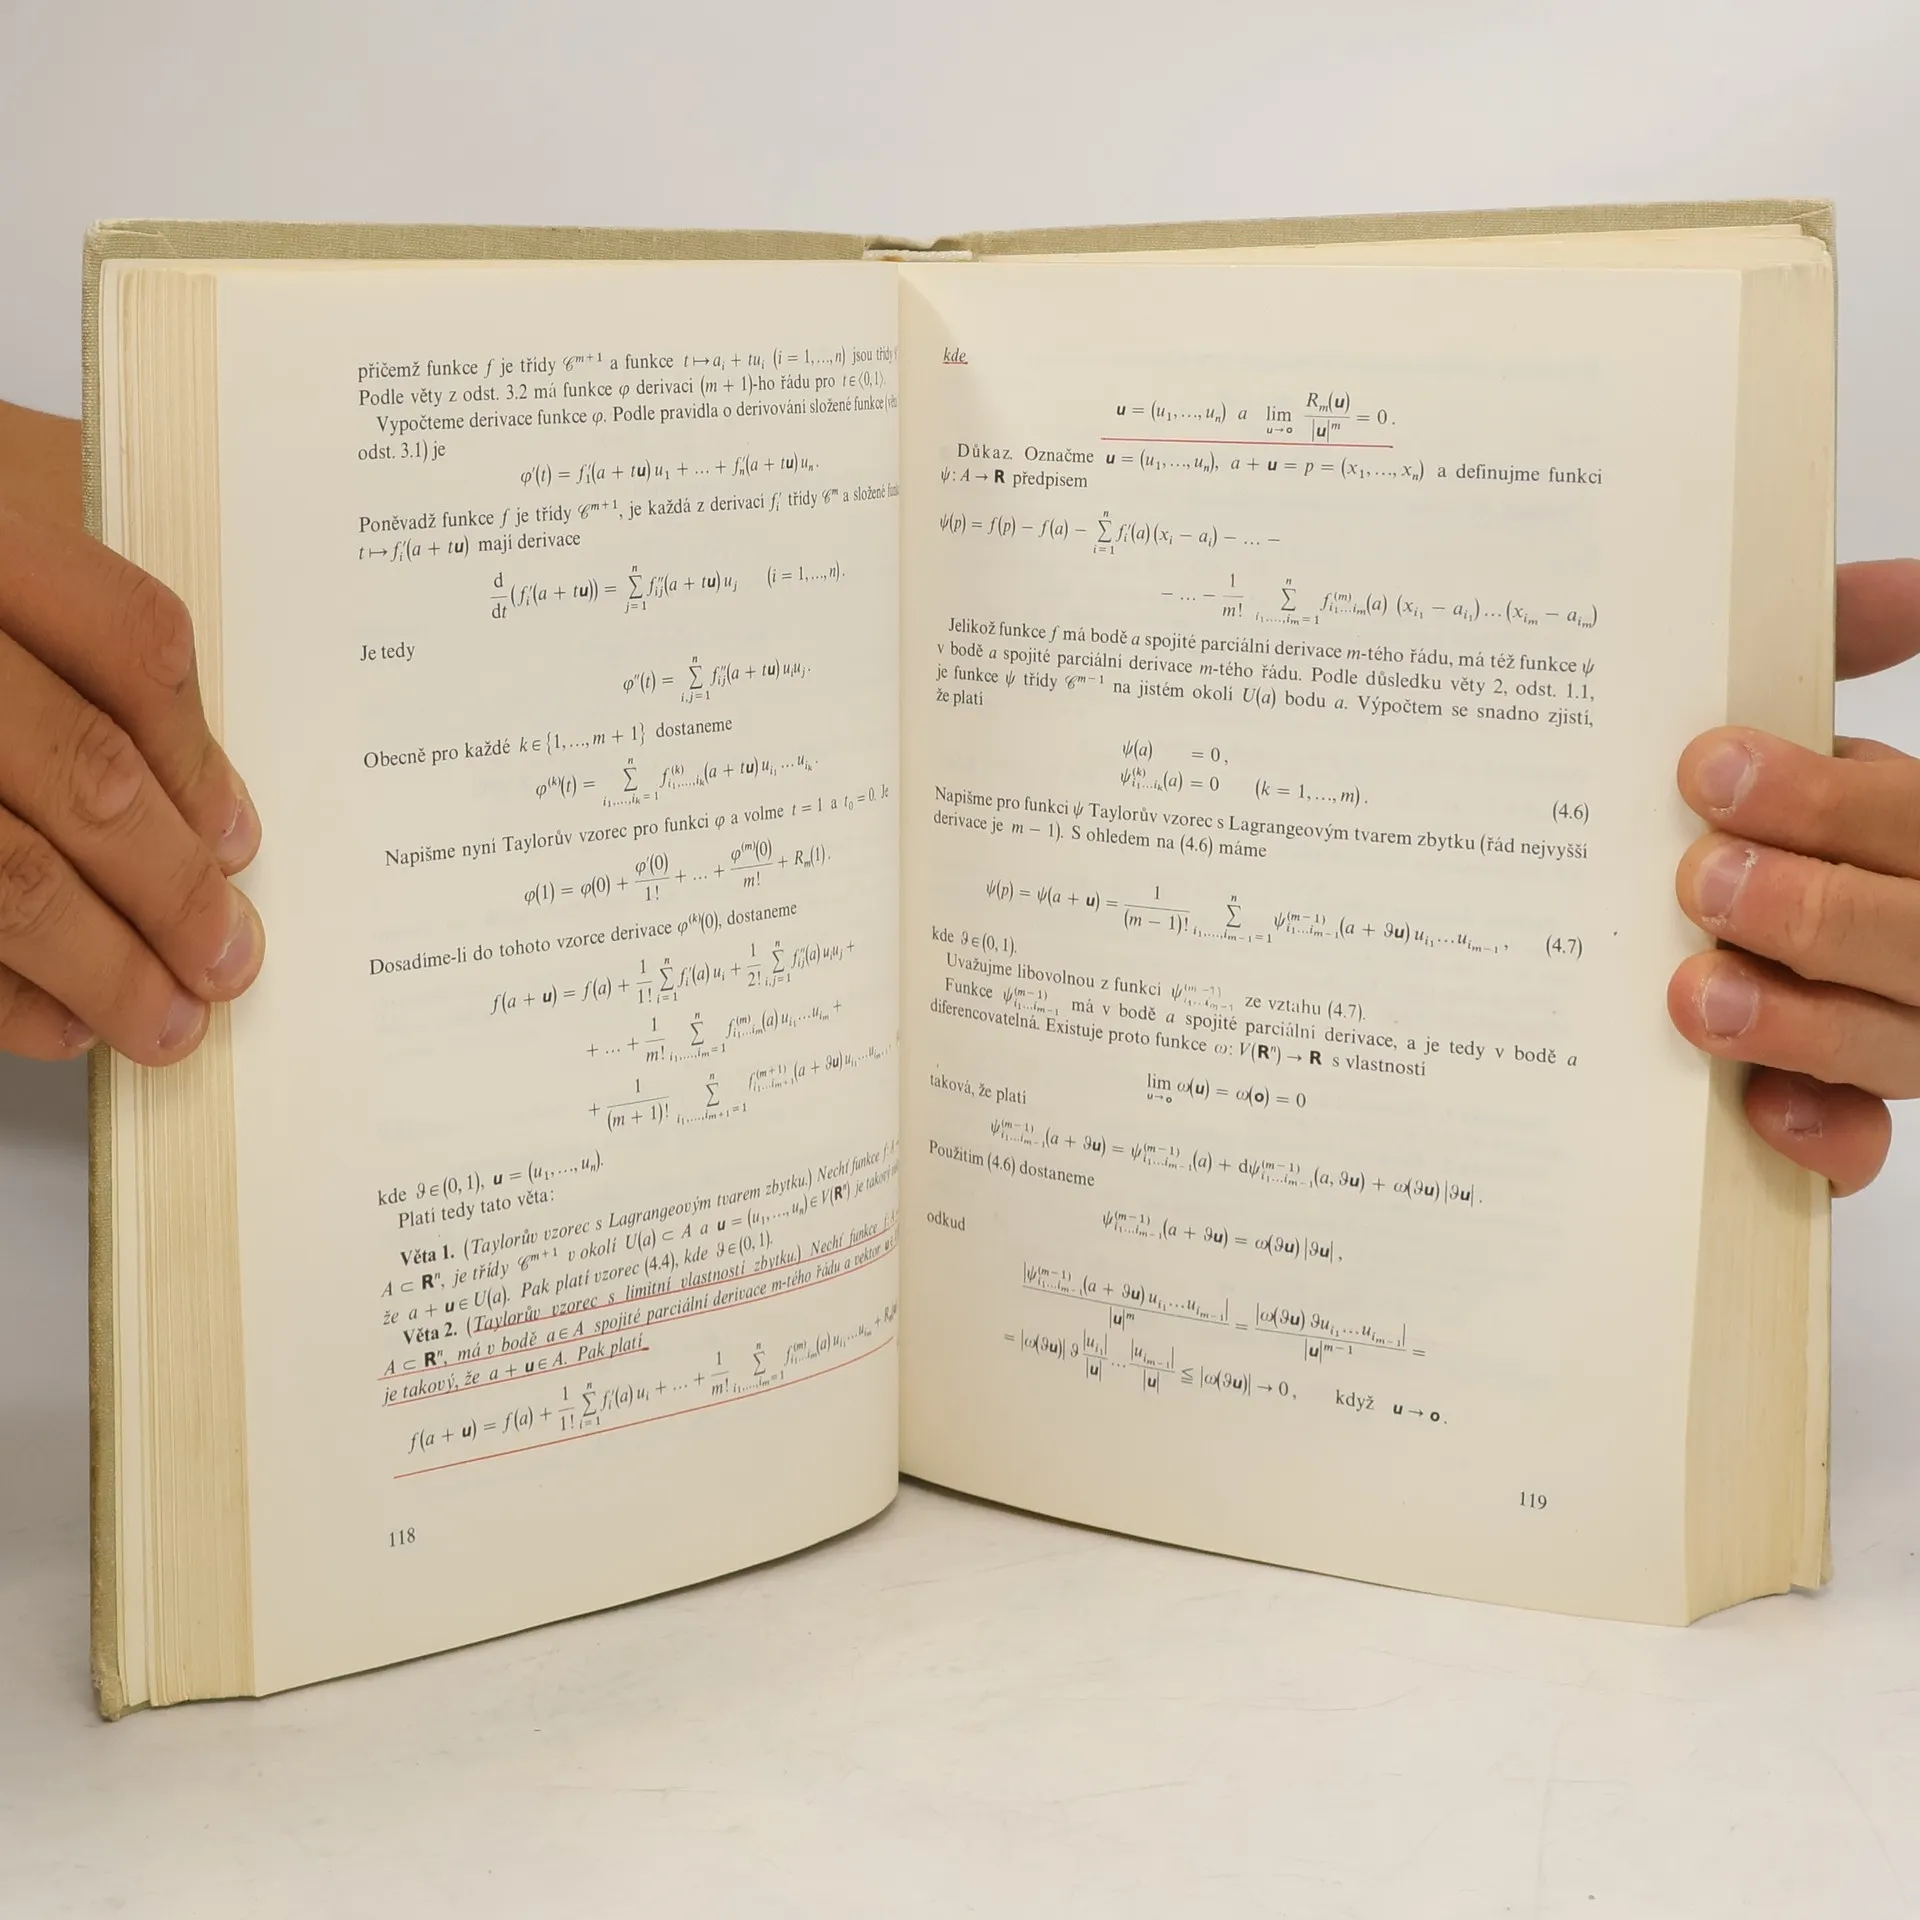 přičemž funkce f je třídy 𝒞^{m+1} a funkce t ↦ a_i + tu_i (i = 1,...,n) jsou třídy
Podle věty z odst. 3.2 má funkce φ derivaci (m + 1)-ho řádu pro t ∈ ⟨0,1⟩.
Vypočteme derivace funkce φ. Podle pravidla o derivování složené funkce (větu
odst. 3.1) je
φ′(t) = f′_1(a + tu) u_1 + ... + f′_n(a + tu) u_n.
Poněvadž funkce f je třídy 𝒞^{m+1}, je každá z derivací f′_i třídy 𝒞^m a složené
t ↦ f′_i(a + tu) mají derivace
d/dt (f′_i(a + tu)) = ∑_{j=1}^{n} f″_{ij}(a + tu) u_j (i = 1,...,n).
Je tedy
φ″(t) = ∑_{i,j=1}^{n} f″_{ij}(a + tu) u_i u_j.
Obecně pro každé k ∈ {1,...,m + 1} dostaneme
φ^{(k)}(t) = ∑_{i_1,...,i_k=1}^{n} f^{(k)}_{i_1,...,i_k}(a + tu) u_{i_1} ... u_{i_k}.
Napišme nyní Taylorův vzorec pro funkci φ a volme t = 1 a t_0 = 0. Je
φ(1) = φ(0) + φ′(0)/1! + ... + φ^{(m)}(0)/m! + R_m(1).
Dosadíme-li do tohoto vzorce derivace φ^{(k)}(0), dostaneme
f(a + u) = f(a) + 1/1! ∑_{i=1}^{n} f′_i(a) u_i + 1/2! ∑_{i,j=1}^{n} f″_{ij}(a) u_i u_j +
+ ... + 1/m! ∑_{i_1,...,i_m=1}^{n} f^{(m)}_{i_1...i_m}(a) u_{i_1}...u_{i_m} +
+ 1/(m + 1)! ∑_{i_1,...,i_{m+1}=1}^{n} f^{(m+1)}_{i_1...i_{m+1}}(a + ϑu) u_{i_1}...u_{i_{m+1}}
kde ϑ ∈ (0, 1), u = (u_1,..., u_n).
Platí tedy tato věta:
Věta 1. (Taylorův vzorec s Lagrangeovým tvarem zbytku.) Nechť funkce f: A
A ⊂ R^n, je třídy 𝒞^{m+1} v okolí U(a) ⊂ A a u = (u_1,..., u_n) ∈ V(R^n) je takový
že a + u ∈ U(a). Pak platí vzorec (4.4), kde ϑ ∈ (0, 1).
Věta 2. (Taylorův vzorec s limitní vlastností zbytku.) Nechť funkce f: A
A ⊂ R^n, má v bodě a ∈ A spojité parciální derivace m-tého řádu a vektor u ∈
je takový, že a + u ∈ A. Pak platí
f(a + u) = f(a) + 1/1! ∑_{i=1}^{n} f′_i(a) u_i + ... + 1/m! ∑_{i_1,...,i_m=1}^{n} f^{(m)}_{i_1...i_m}(a) u_{i_1}...u_{i_m} + R_m(u)
118
kde
u = (u_1,..., u_n) a lim_{u→o} R_m(u)/|u|^m = 0.
Důkaz. Označme u = (u_1,..., u_n), a + u = p = (x_1,..., x_n) a definujme funkci
ψ: A → R předpisem
ψ(p) = f(p) − f(a) − ∑_{i=1}^{n} f′_i(a) (x_i − a_i) − ... −
− ... − 1/m! ∑_{i_1,...,i_m=1}^{n} f^{(m)}_{i_1...i_m}(a) (x_{i_1} − a_{i_1})...(x_{i_m} − a_{i_m})
Jelikož funkce f má bodě a spojité parciální derivace m-tého řádu, má též funkce ψ
v bodě a spojité parciální derivace m-tého řádu. Podle důsledku věty 2, odst. 1.1,
je funkce ψ třídy 𝒞^{m−1} na jistém okolí U(a) bodu a. Výpočtem se snadno zjistí,
že platí
ψ(a) = 0,
ψ^{(k)}_{i_1...i_k}(a) = 0 (k = 1,..., m). (4.6)
Napišme pro funkci ψ Taylorův vzorec s Lagrangeovým tvarem zbytku (řád nejvyšší
derivace je m − 1). S ohledem na (4.6) máme
ψ(p) = ψ(a + u) = 1/(m − 1)! ∑_{i_1,...,i_{m−1}=1}^{n} ψ^{(m−1)}_{i_1...i_{m−1}}(a + ϑu) u_{i_1}...u_{i_{m−1}}, (4.7)
kde ϑ ∈ (0, 1).
Uvažujme libovolnou z funkcí ψ^{(m−1)}_{i_1...i_{m−1}} ze vztahu (4.7).
Funkce ψ^{(m−1)}_{i_1...i_{m−1}} má v bodě a spojité parciální derivace, a je tedy v bodě a
diferencovatelná. Existuje proto funkce ω: V(R^n) → R s vlastností
lim_{u→o} ω(u) = ω(o) = 0
taková, že platí
ψ^{(m−1)}_{i_1...i_{m−1}}(a + ϑu) = ψ^{(m−1)}_{i_1...i_{m−1}}(a) + dψ^{(m−1)}_{i_1...i_{m−1}}(a, ϑu) + ω(ϑu) |ϑu|.
Použitím (4.6) dostaneme
ψ^{(m−1)}_{i_1...i_{m−1}}(a + ϑu) = ω(ϑu) |ϑu|,
odkud
|ψ^{(m−1)}_{i_1...i_{m−1}}(a + ϑu) u_{i_1}...u_{i_{m−1}}| / |u|^m = |ω(ϑu) ϑu_{i_1}...u_{i_{m−1}}| / |u|^{m−1} =
= |ω(ϑu)| ϑ |u_{i_1}|/|u| ... |u_{i_{m−1}}|/|u| ≦ |ω(ϑu)| → 0, když u → o.
119